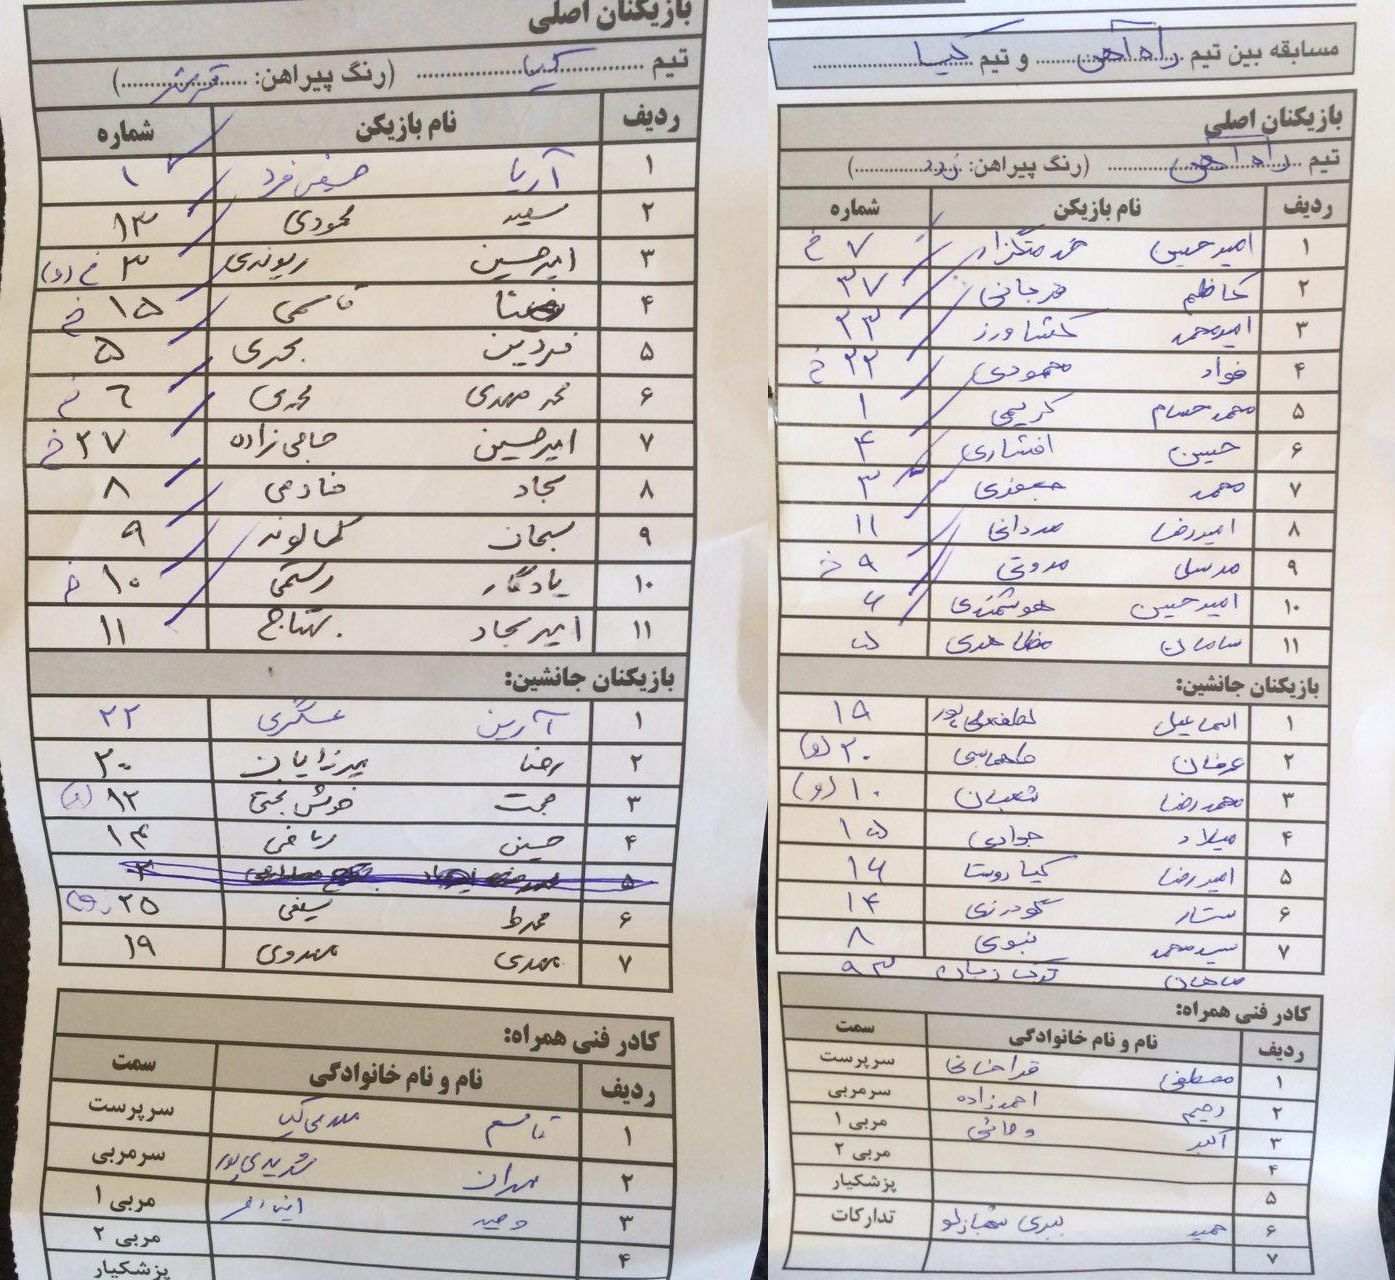 بازیکنان اصلی
تیم کیا (رنگ پیراهن: قرمز)
ردیف نام بازیکن شماره
۱ آریا ۱
۲ سعید محمودی ۱۳
۳ امیرحسین ریوندی ۳ خ (و)
۴ قاسمی ۱۵ خ
۵ فردین بحری ۵
۶ محمد مهدی ۶ خ
۷ امیرحسین حاجی زاده ۲۷ خ
۸ سجاد خادمی ۸
۹ سبحان کمالوند ۹
۱۰ یادگار رستمی ۱۰ خ
۱۱ امیرسجاد ۱۱
بازیکنان جانشین:
۱ آرین عسگری ۲۲
۲ رضا میرزایان ۲۰
۳ حجت خوش بختی ۱۲ (و)
۴ حسین ۱۴
۵
۶ سیفی ۲۵ (و)
۷ مهدی مهدوی ۱۹
کادر فنی همراه:
ردیف نام و نام خانوادگی سمت
۱ قاسم سرپرست
۲ مهران سرمربی
۳ وحید مربی ۱
۴ مربی ۲
پزشکیار
مسابقه بین تیم راه آهن و تیم کیا
بازیکنان اصلی
تیم راه آهن (رنگ پیراهن: زرد)
ردیف نام بازیکن شماره
۱ امیرحسین خدمتگزار ۷ خ
۲ کاظم مرجانی ۳۷
۳ امیرمحمد کشاورز ۳۳
۴ فواد محمودی ۲۲ خ
۵ محمدحسام کریمی ۱
۶ حسین افشاری ۴
۷ محمد جعفری ۳
۸ امیررضا مردانی ۱۱
۹ مرسل مروتی ۹ خ
۱۰ امیرحسین هوشمندی ۶
۱۱ سامان مظاهری ۵
بازیکنان جانشین:
۱ اسماعیل لطفعلی پور ۱۹
۲ عرفان طهماسبی ۲۰ (و)
۳ محمدرضا شعبان ۱۰ (و)
۴ میلاد جوادی ۱۵
۵ امیررضا کیاروستا ۱۶
۶ ستار گودرزی ۱۴
۷ سیدمحمد نبوی ۸
ماهان ترک زبان ۹۳
کادر فنی همراه:
ردیف نام و نام خانوادگی سمت
۱ مصطفی قراخانی سرپرست
۲ رحیم احمدزاده سرمربی
۳ اکبر وفائی مربی ۱
۴ مربی ۲
۵ پزشکیار
۶ حمید ببری شهبازلو تدارکات
۷